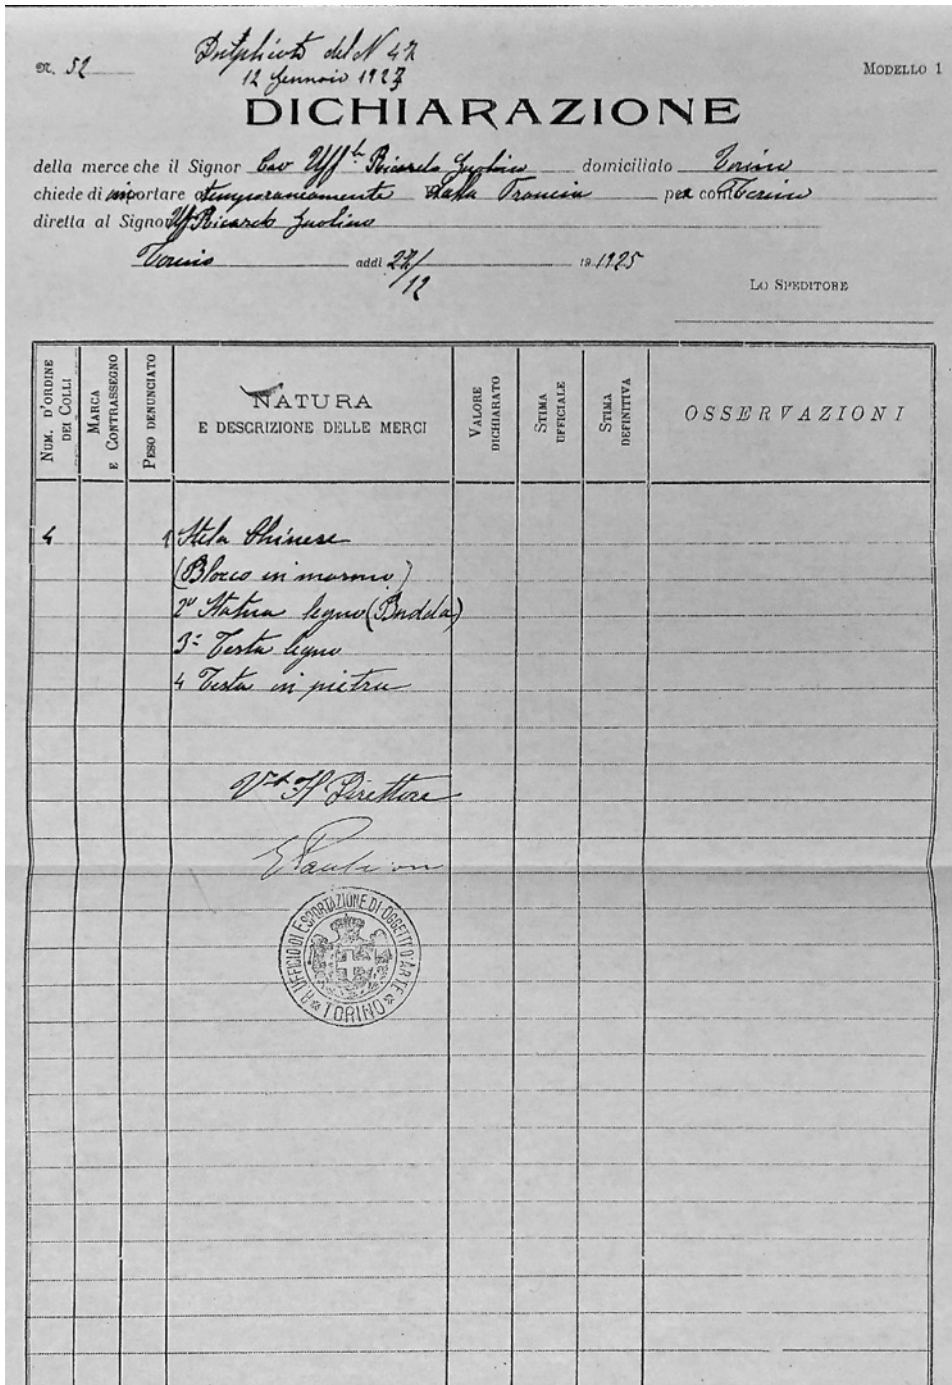 N. 52
Duplicato del N 47
12 Gennaio 1927
MODELLO 1
DICHIARAZIONE
della merce che il Signor Cav Uff le Riccardo Gualino domiciliato Torino
chiede di importare temporaneamente dalla Francia per Torino
diretta al Signor Uff Riccardo Gualino
Torino addì 27/12 19 1925
LO SPEDITORE
NUM. D'ORDINE DEI COLLI
MARCA E CONTRASSEGNO
PESO DENUNCIATO
NATURA
E DESCRIZIONE DELLE MERCI
VALORE DICHIARATO
STIMA UFFICIALE
STIMA DEFINITIVA
OSSERVAZIONI
4 1 Stela Chinese
(Blocco in marmo)
2° Statua legno (Budda)
3° Testa legno
4 Testa in pietra
V Il Direttore
R. UFFICIO DI ESPORTAZIONE DI OGGETTI D'ARTE
TORINO